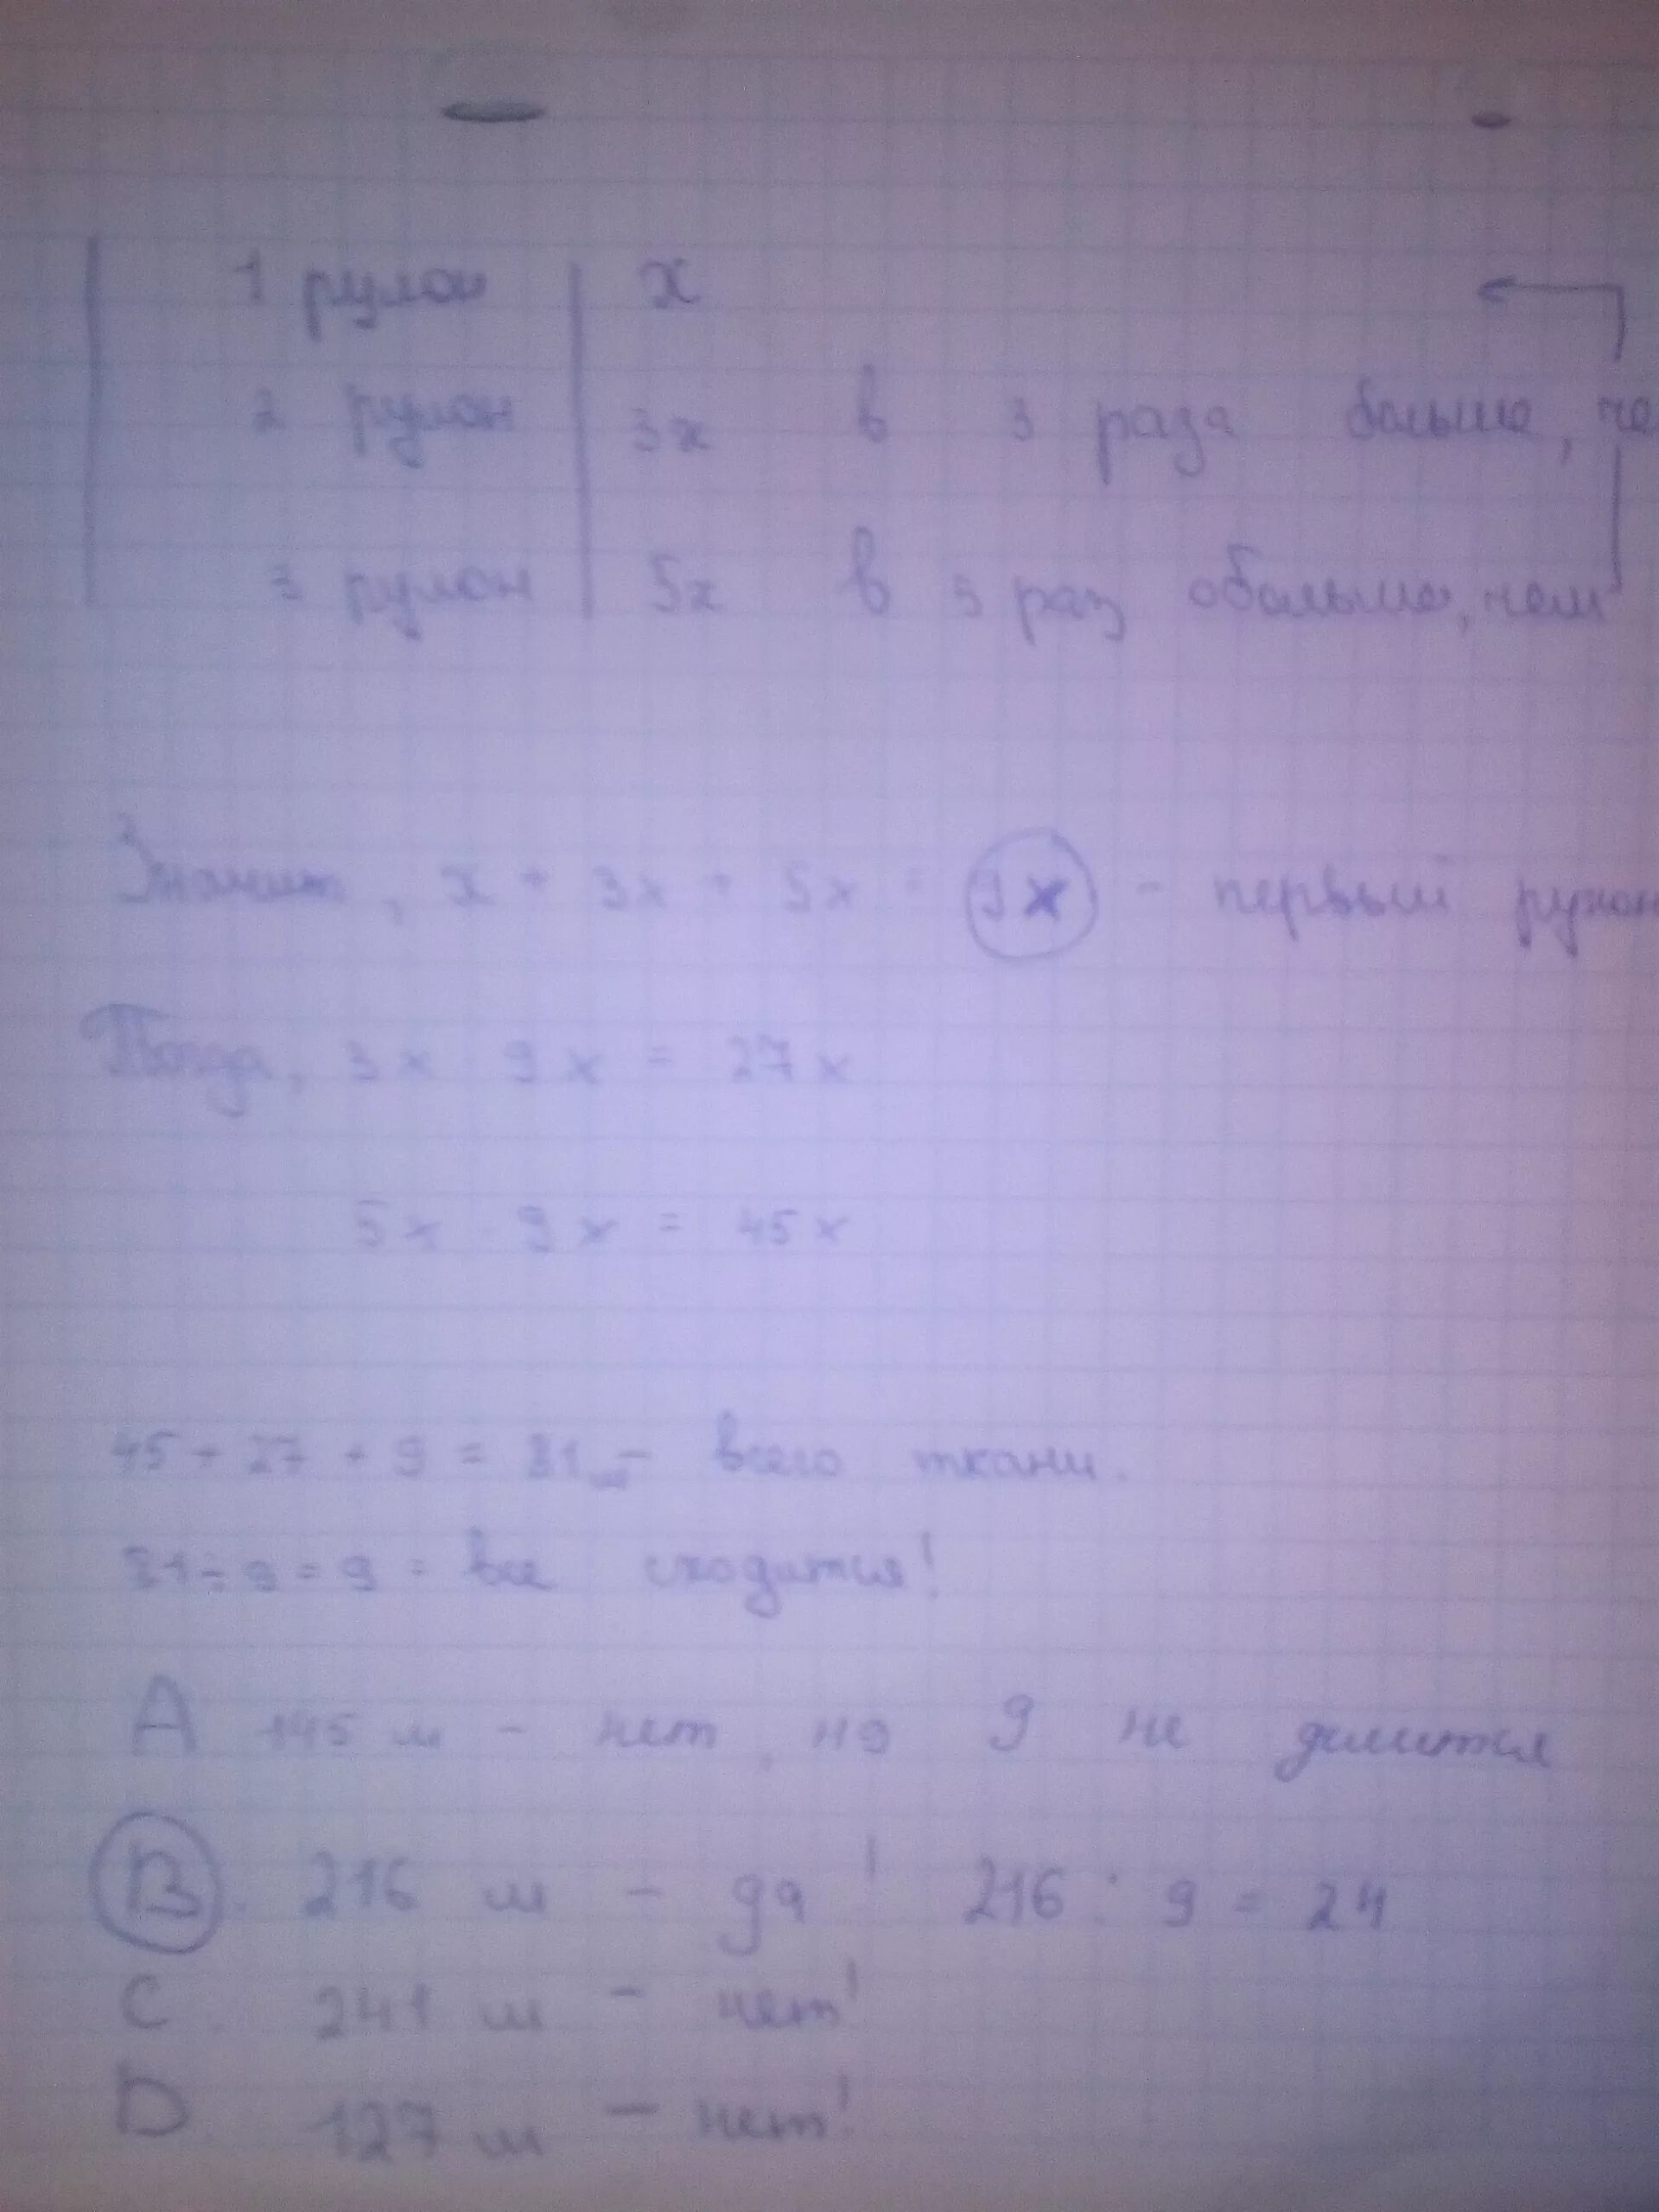 1 рулон | x
2 рулон | 3x в 3 раза больше, че
3 рулон | 5x в 5 раз обольше, чем
Значит, x + 3x + 5x = 9x - первый рулон
Тогда, 3x · 9x = 27x
5x · 9x = 45x
45 + 27 + 9 = 81 м - всего ткани.
81 ÷ 9 = 9 = все сходится!
A 145 м - нет, на 9 не делится
B. 216 м - да! 216 : 9 = 24
C. 241 м - нет!
D. 127 м - нет!